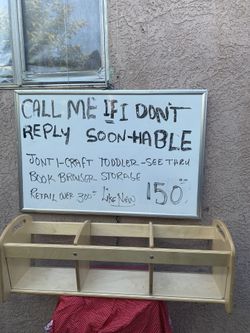 CALL ME IF I DON'T
REPLY SOON-HABLE
JONTI-CRAFT TODDLER-SEE THRU
BOOK BROWSER STORAGE
RETAIL OVER 300- LIKE NEW 150-